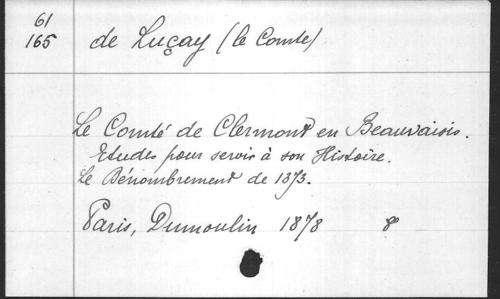 61
165
de Luçay (le Comte)
Le Comté de Clermont en Beauvaisis.
Etudes pour servir à son Histoire.
Le Dénombrement de 1373.
Paris, Dumoulin 1878 8°